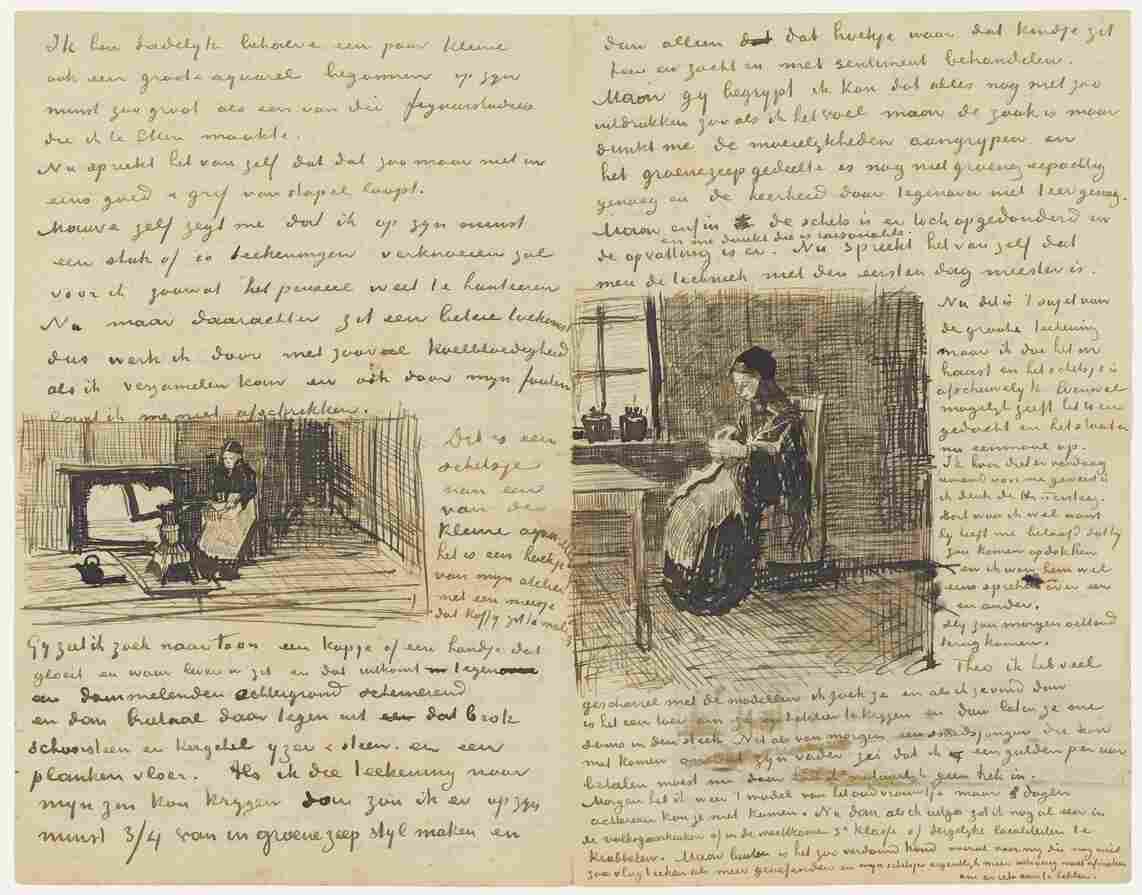 Ik ben dadelyk behalve een paar kleine
ook een groote aquarel begonnen op zyn
minst zoo groot als een van die figuurstudies
die ik te Etten maakte.
Nu spreekt het van zelf dat dat zoo maar niet in
eens goed & grif van stapel loopt.
Mauve zelf zegt me dat ik op zyn minst
een stuk of 10 teekeningen verknoeien zal
voor ik zoowat het penseel weet te hanteeren
Nu maar daarachter zit een betere toekomst
dus werk ik door met zooveel koelbloedigheid
als ik verzamelen kan en ook door myn fouten
laat ik me niet afschrikken.
Dit is een
schetsje
van een
van de
kleine
het is een hoekje
van myn atelier
met een meisje
dat koffy zit te malen
Gy ziet ik zoek naar toon een kopje of een handje dat
gloeit en waar leven in zit en dat uitkomt tegen
een dommelenden achtergrond schemerend
en dan brutaal daar tegen uit dat brok
schoorsteen en kagchel yzer & steen. en een
planken vloer. Als ik die teekening naar
myn zin kon krygen dan zou ik er op zyn
minst 3/4 van in groenezeep styl maken en
dan alleen dat hoekje waar dat kindje zit
teer en zacht en met sentiment behandelen.
Maar gy begrypt ik kan dat alles nog niet zoo
uitdrukken zoo als ik het voel maar de zaak is maar
dunkt me de moeielykheden aangrypen en
het groenezeep gedeelte is nog niet groenezeepachtig
genoeg en de teerheid daar tegenover niet teer genoeg.
Maar enfin de schets is er toch opgedonderd en
de opvatting is er. en me dunkt die is raisonable. Nu spreekt het van zelf dat
men de techniek niet den eersten dag meester is.
Nu dit is 't sujet van
de groote teekening
maar ik doe het in
haast en het schetsje is
afschuwelyk
mogelyk

Ik hoor
ik denk de
dat waar ik wel wat
hy heeft me beloofd dat hy
zou komen opdokken
en ik wou hem wel
eens spreken over een
en ander.
Hy zou morgen ochtend
terug komen.
Theo ik heb veel
gescharrel met de modellen ik zoek ze en als ik ze vind dan
is het een toer om ze op het atelier te krygen en dan laten ze me
in den steek. Net als van morgen een smidsjongen die kon
niet komen omdat zyn vader zei dat ik een gulden per uur
betalen moest nu daar had ik natuurlyk geen trek in.
Morgen heb ik weer 't model van het oud vrouwtje maar 8 dagen
achtereen kon ze niet komen. Nu dan als ik uitga zit ik nog al eens in
de volksgaarkeuken of in de wachtkamer 3e klasse of dergelyke localiteiten te
krabbelen. Maar buiten is het zoo verdomd koud vooral voor my die nog niet
zoo vlug teeken als meer geoefenden en myn schetsje eigentlyk meer uitvoerig moet afmaken
om er iets aan te hebben.